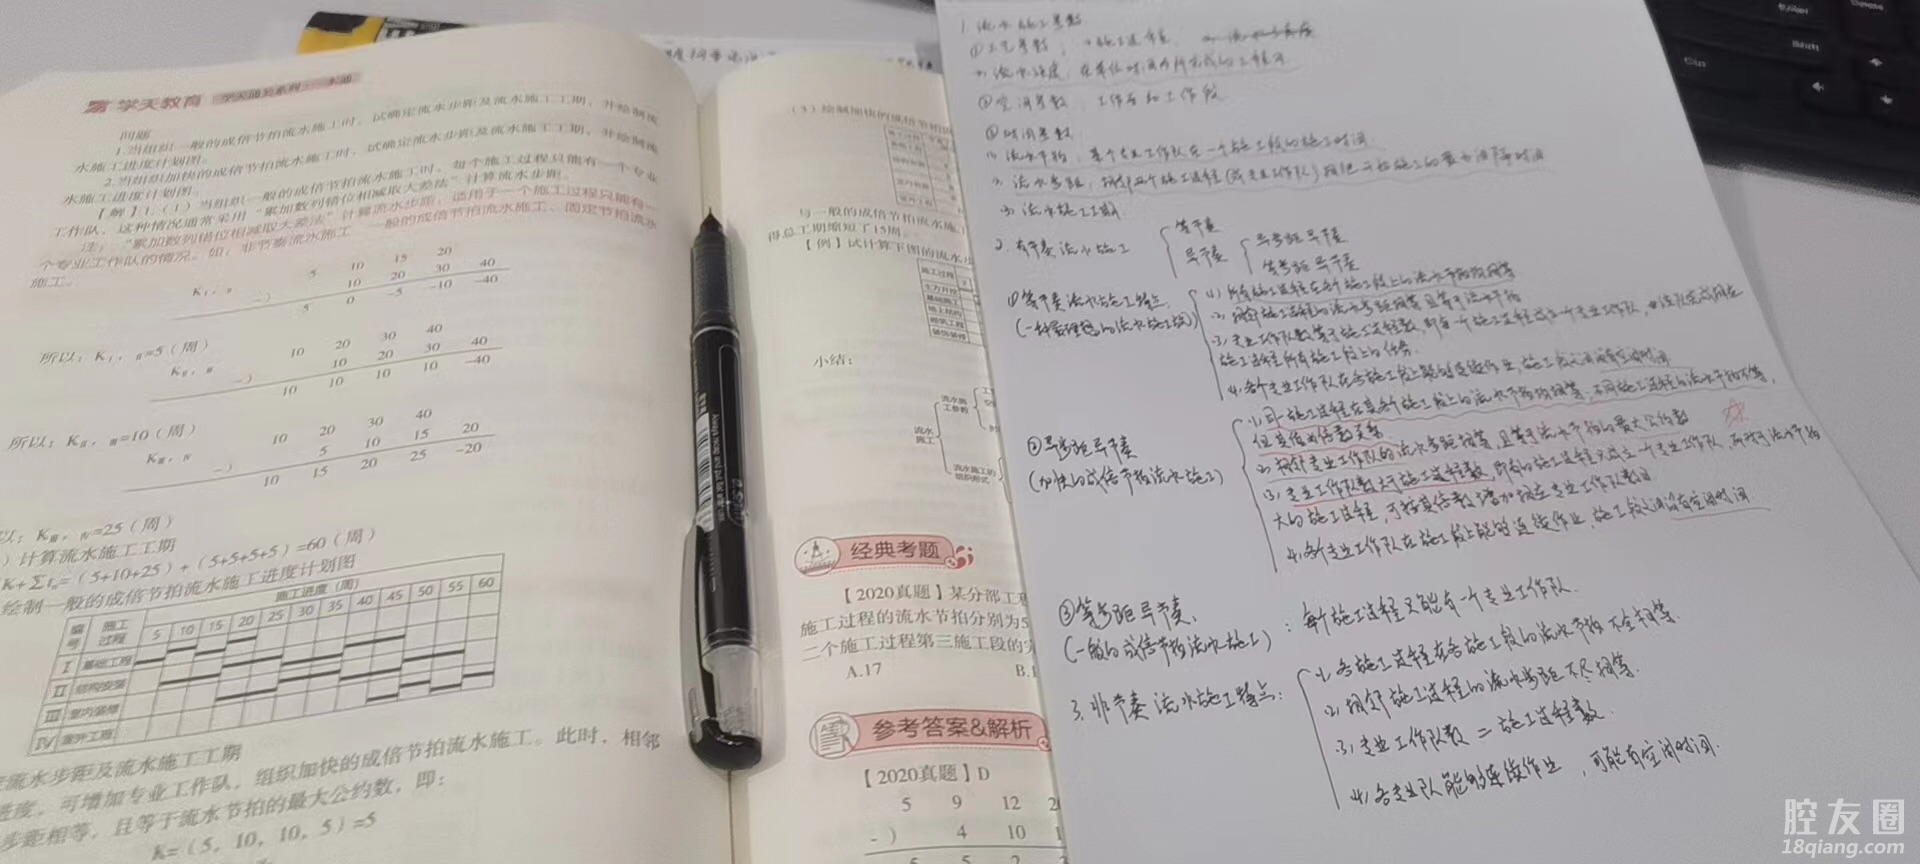 学天教育
问题
1.当组织一般的成倍节拍流水施工时，试确定流水步距及流水施工工期，并绘制流
水施工进度计划图。
2.当组织加快的成倍节拍流水施工时，试确定流水步距及流水施工工期，并绘制流
水施工进度计划图。
【解】1.（1）当组织一般的成倍节拍流水施工时，每个施工过程只能有一个专业
工作队，这种情况通常采用“累加数列错位相减取大差法”计算流水步距。
注：“累加数列错位相减取大差法”计算流水步距，适用于一个施工过程只能有一
个专业工作队的情况。如：非节奏流水施工、一般的成倍节拍流水施工、固定节拍流水
施工。
KⅠ，Ⅱ 5 10 15 20
-） 10 20 30 40
5 0 -5 -10 -40
所以：KⅠ，Ⅱ=5（周）
KⅡ，Ⅲ 10 20 30 40
-） 10 20 30 40
10 10 10 10 -40
所以：KⅡ，Ⅲ=10（周）
KⅢ，Ⅳ 10 20 30 40
-） 5 10 15 20
10 15 20 25 -20
以：KⅢ，Ⅳ=25（周）
）计算流水施工工期
K+Σtn=（5+10+25）+（5+5+5+5）=60（周）
绘制一般的成倍节拍流水施工进度计划图
编号 施工过程 施工进度（周）
5 10 15 20 25 30 35 40 45 50 55 60
Ⅰ 基础工程
Ⅱ 结构安装
Ⅲ 室内装修
Ⅳ 室外工程
流水步距及流水施工工期
进度，可增加专业工作队，组织加快的成倍节拍流水施工。此时，相邻
步距相等，且等于流水节拍的最大公约数，即：
K=（5，10，10，5）=5
（3）绘制加快的成倍节拍
与一般的成倍节拍流水施
得总工期缩短了15周。
【例】试计算下图的流水步
施工过程
小结：
流水施工
流水施工参数
流水施工的组织形式
经典考题
【2020真题】某分部工
施工过程的流水节拍分别为5
二个施工过程第三施工段的完
A.17 B.1
参考答案&解析
【2020真题】D
5 9 12
-） 4 10
5 5 2
1. 流水施工参数
①工艺参数：
②空间参数：工作面和工作段
③时间参数
⑴ 流水节拍：某个专业工作队在一个施工段的施工时间
⑶ 流水施工工期
2. 有节奏流水施工
等节奏
异节奏
异步距异节奏
等步距异节奏
①等节奏流水施工特点
(一种最理想的流水施工方式)
⑴ 所有施工过程在各个施工段上的流水节拍均相等
⑵ 相邻施工过程的流水步距相等且等于流水节拍
⑶ 专业工作队数等于施工过程数，即每一个施工过程成立一个专业工作队，由该队完成相应
施工过程所有施工段上的任务.
⑷ 各个专业工作队在各施工段上能够连续作业，施工段之间没有空闲时间
②异步距异节奏
(加快的成倍节拍流水施工)
⑴ 同一施工过程在其各个施工段上的流水节拍均相等，不同施工过程的流水节拍不等，
但其值为倍数关系
⑵ 相邻专业工作队的流水步距相等，且等于流水节拍的最大公约数
⑶ 专业工作队数大于施工过程数，即有的施工过程只成立一个专业工作队，而对于流水节拍
大的施工过程，可按其倍数增加相应专业工作队数目
⑷ 各个专业工作队在施工段上能够连续作业，施工段之间没有空闲时间
③等步距异节奏
(一般的成倍节拍流水施工)：每个施工过程只能有一个专业工作队.
3. 非节奏流水施工特点：
⑴ 各施工过程在各施工段的流水节拍不全相等.
⑵ 相邻施工过程的流水步距不尽相等.
⑶ 专业工作队数=施工过程数.
⑷ 各专业队能够连续作业，可能有空闲时间.
0.5mm
Shift
Ctrl
腔友圈
18qiang.com